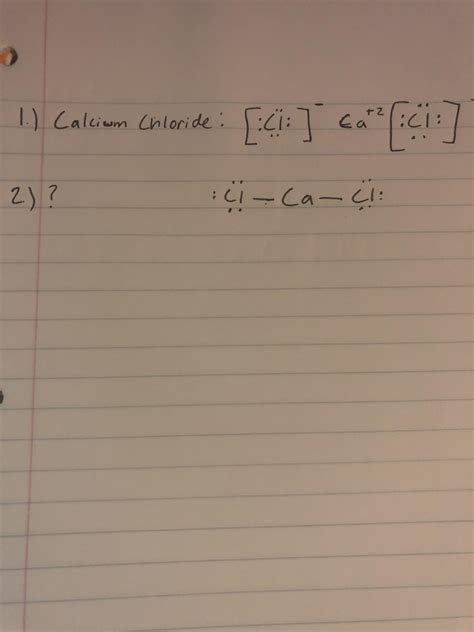 1.) Calcium Chloride: [:C̤̈l:]⁻ Ca⁺² [:C̤̈l:]⁻
2) ? :C̤̈l — Ca — C̤̈l: